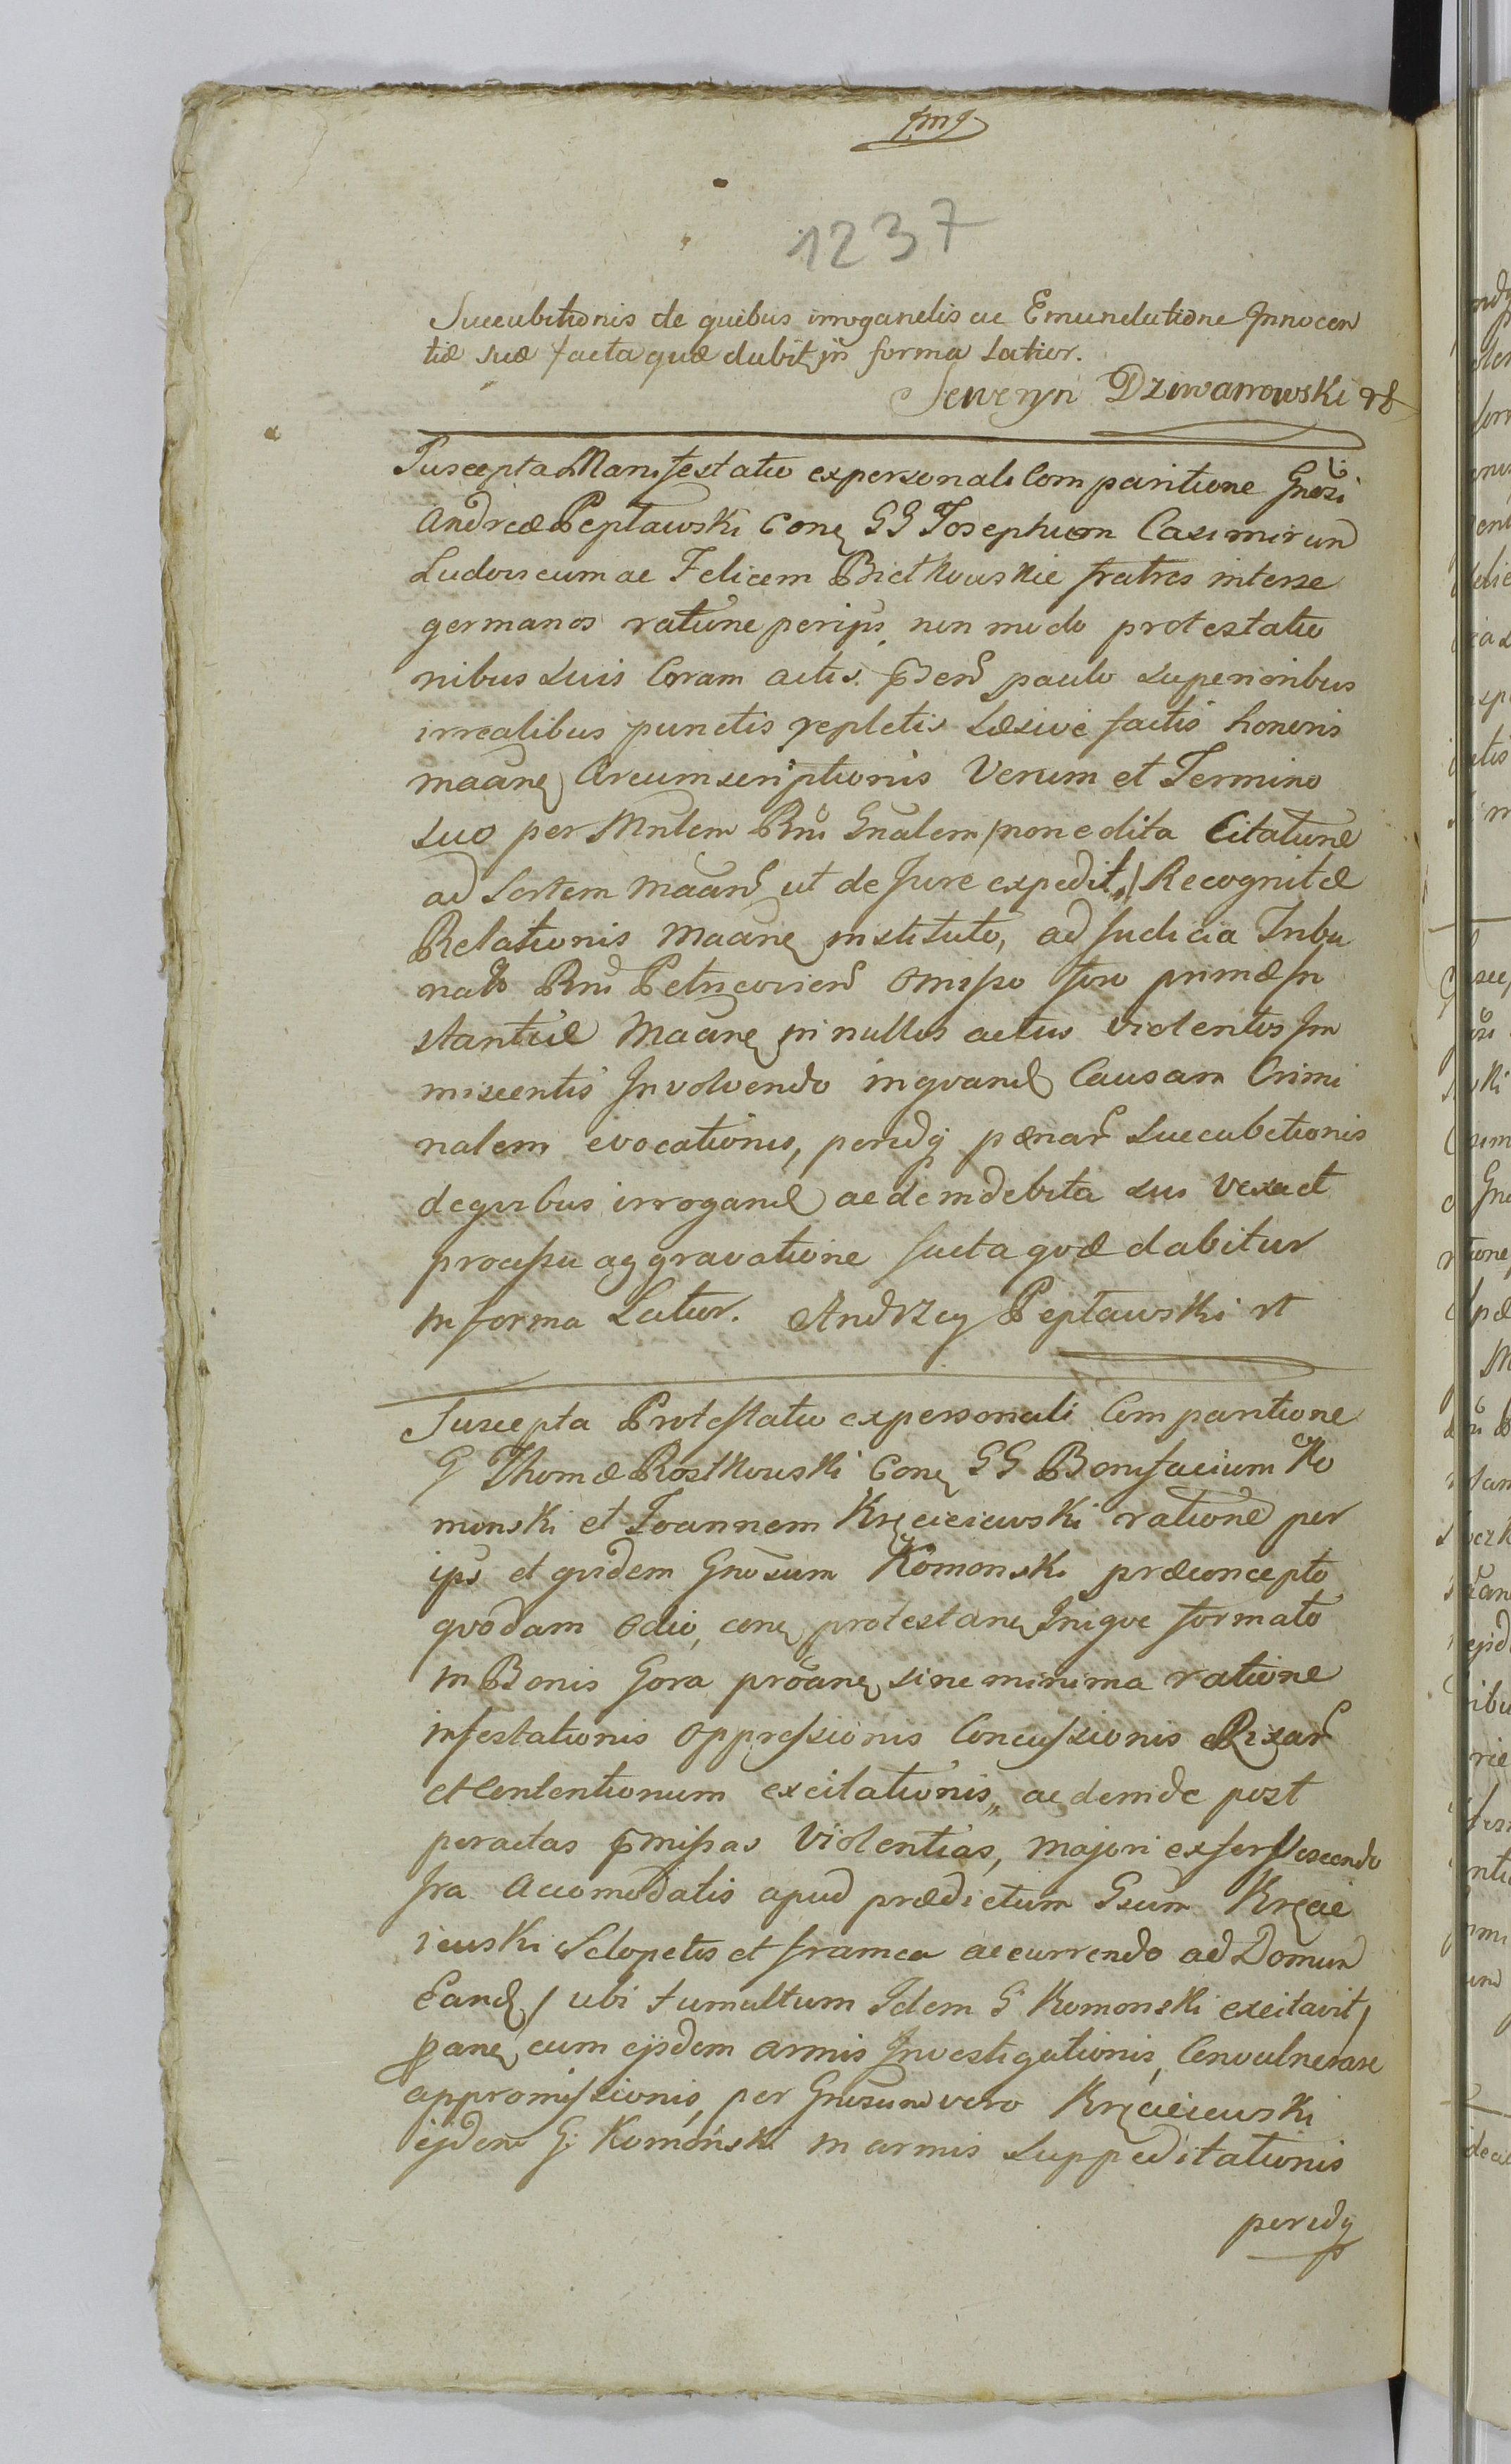 1237
Succubitionis de quibus irrogandis ac Emundatione Innocen
tiæ suæ facta quæ dabit in forma Latior.
Seweryn Dziwanowski
Suscepta Manifestatio ex personali Comparitione Gnosi
Andreæ Peptawski Con GG Josephum Casimirum
Ludovicum ac Felicem Bietkowskie fratres interse
germanos ratione per ips non modo protestatio
nibus suis Coram actis paulo superioribus
irrealibus punctis repletis Læsive factis honoris
maane Circumscriptionis Verum et Termino
suo per Mnlem Rni Gnalem /non edita Citatione
ad Sortem Maan ut de Jure expedit/ Recognitæ
Relationis Maane instituto, ad Judicia Tribu
nalis Rni Petricovien omisso foro primæ In
stantiæ Maane in nullos actus violentos Im
miscentis Involvendo in qvand Causam Crimi
nalem evocationis, peridq pænar succubitionis
deqvibus irrogand ac dein debita sui vexa et
processu aggravatione facta qvæ dabitur
in forma Latior. Andrzey Peptawski
Suscepta Protestatio ex personali Comparitione
G Thomæ Rostkowski Con GG Bonifacium Ko
monski et Joannem Kręcieiewski ratione per
ips et qvidem Gnosum Komonski præconcepto
qvodam odio, con protestan Iniqve formato
in Bonis Gora proane sine minima ratione
infestationis oppressionis Concussionis Rixar
et Contentionum excitationis, ac deinde post
peractas pmissas Violentias, majori exfervescendo
Ira Accomodatis apud prædictum Gsum Kręcie
iewski Sclopetis et framea accurrendo ad Domum
Eand / ubi tumultum Idem G Komonski excitavit/
pane cum ejsdem armis Investigationis, Convulnerare
appromissionis, per Gnosum vero Kręcieiewski
ejdem G. Komoński in armis suppeditationis
peridq